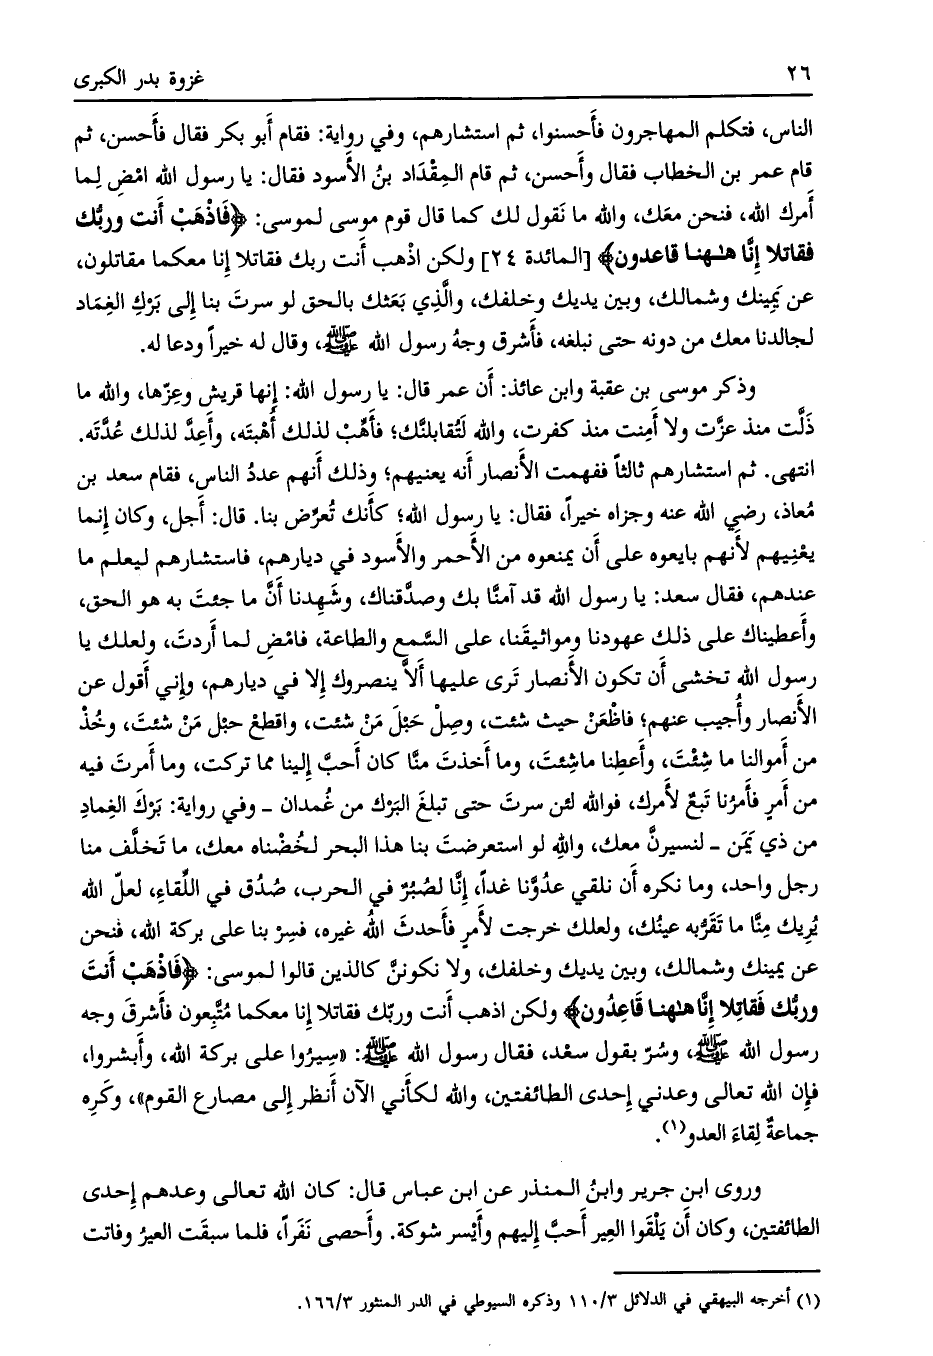 ٢٦ غزوة بدر الكبرى
الناس، فتكلم المهاجرون فأَحسنوا، ثم استشارهم، وفي رواية: فقام أَبو بكر فقال فأَحسن، ثم
قام عمر بن الخطاب فقال وأَحسن، ثم قام المِقْدَاد بنُ الأَسود فقال: يا رسول الله امْضِ لِما
أَمرك الله، فنحن معَك، والله ما نَقول لك كما قال قوم موسى لموسى: ﴿فَاذْهَبْ أَنت وربُّك
فقاتلا إِنَّا هٰهنا قاعدون﴾ [المائدة ٢٤] ولكن اذْهب أَنت ربك فقاتلا إنا معكما مقاتلون،
عن يَمِينك وشمالك، وبين يديك وخلفك، والَّذِي بَعَثك بالحق لو سرتَ بنا إلى بَرْكِ الغِمَاد
لجالدنا معك من دونه حتى نبلغه، فأَشرق وجهُ رسول الله ﷺ، وقال له خيراً ودعا له.
وذكر موسى بن عقبة وابن عائذ: أَن عمر قال: يا رسول الله: إِنها قريش وعِزّها، والله ما
ذَلَّت منذ عزَّت ولا أَمِنت منذ كفرت، والله لَتُقابلنَّك؛ فأَهِّبْ لذلك أُهْبتَه، وأَعِدَّ لذلك عُدَّتَه.
انتهى. ثم استشارهم ثالثاً ففهمت الأَنصار أَنه يعنيهم؛ وذلك أَنهم عددُ الناس، فقام سعد بن
مُعاذ، رضي الله عنه وجزاه خيراً، فقال: يا رسول الله؛ كأَنك تُعرِّض بنا. قال: أَجل، وكان إِنما
يعْنِيهم لأَنهم بايعوه على أَن يمنعوه من الأَحمر والأَسود في ديارهم، فاستشارهم ليعلم ما
عندهم، فقال سعد: يا رسول الله قد آمنَّا بك وصدَّقناك، وشَهِدنا أَنَّ ما جئتَ به هو الحق،
وأَعطيناك على ذلك عهودنا ومواثيقَنا، على السَّمع والطاعة، فامْضِ لما أَردتَ، ولعلك يا
رسول الله تخشى أَن تكون الأَنصار تَرى عليها أَلاَّ ينصروك إلا في ديارهم، وإني أَقول عن
الأَنصار وأُجيب عنهم؛ فاظْعَنْ حيث شئت، وصِلْ حَبْلَ مَنْ شئت، واقطعْ حبْل مَنْ شئتَ، وخُذْ
من أَموالنا ما شِئْتَ، وأَعطِنا ماشِئتَ، وما أَخذتَ منَّا كان أَحبَّ إلينا مما تركت، وما أَمرتَ فيه
من أَمرٍ فأَمرُنا تَبعٌ لأَمرك، فوالله لئن سرتَ حتى تبلغَ البَرْك من غُمدان ــ وفي رواية: بَرْكَ الغِمادِ
من ذي يَمَن ــ لنسيرنَّ معك، واللهِ لو استعرضتَ بنا هذا البحر لخُضْناه معك، ما تَخلَّف منا
رجل واحد، وما نكره أَن نلقي عدُوَّنا غداً، إِنَّا لصُبُرٌ في الحرب، صُدُق في اللِّقاءِ، لعلّ الله
يُرِيك مِنَّا ما تَقَرُّبه عينُك، ولعلك خرجت لأَمرٍ فأَحدثَ اللهُ غيره، فسِرْ بنا على بركة الله، فنحن
عن يمينك وشمالك، وبين يديك وخلفك، ولا نكوننَّ كالذين قالوا لموسى: ﴿فَاذْهَبْ أَنتَ
وربُّك فَقاتِلا إِنَّا هٰهنا قَاعِدُون﴾ ولكن اذهب أَنت وربّك فقاتلا إنا معكما مُتَّبِعون فأَشرقَ وجه
رسول الله ﷺ، وسُرّ بقول سعْد، فقال رسول الله ﷺ: «سِيرُوا على بركة الله، وأَبشروا،
فإِن الله تعالى وعدني إِحدى الطائفتين، والله لكأَني الآن أَنظر إلى مصارع القوم»، وكَرِه
جماعةٌ لِقاءَ العدو(١).
وروى ابن جرير وابنُ المنذر عن ابن عباس قال: كان الله تعالى وعدهم إِحدى
الطائفتين، وكان أَن يَلْقَوا العِير أَحبَّ إليهم وأَيْسر شوكة. وأَحصى نَفَراً، فلما سبقَت العيرُ وفاتت
(١) أخرجه البيهقي في الدلائل ١١٠/٣ وذكره السيوطي في الدر المنثور ١٦٦/٣.